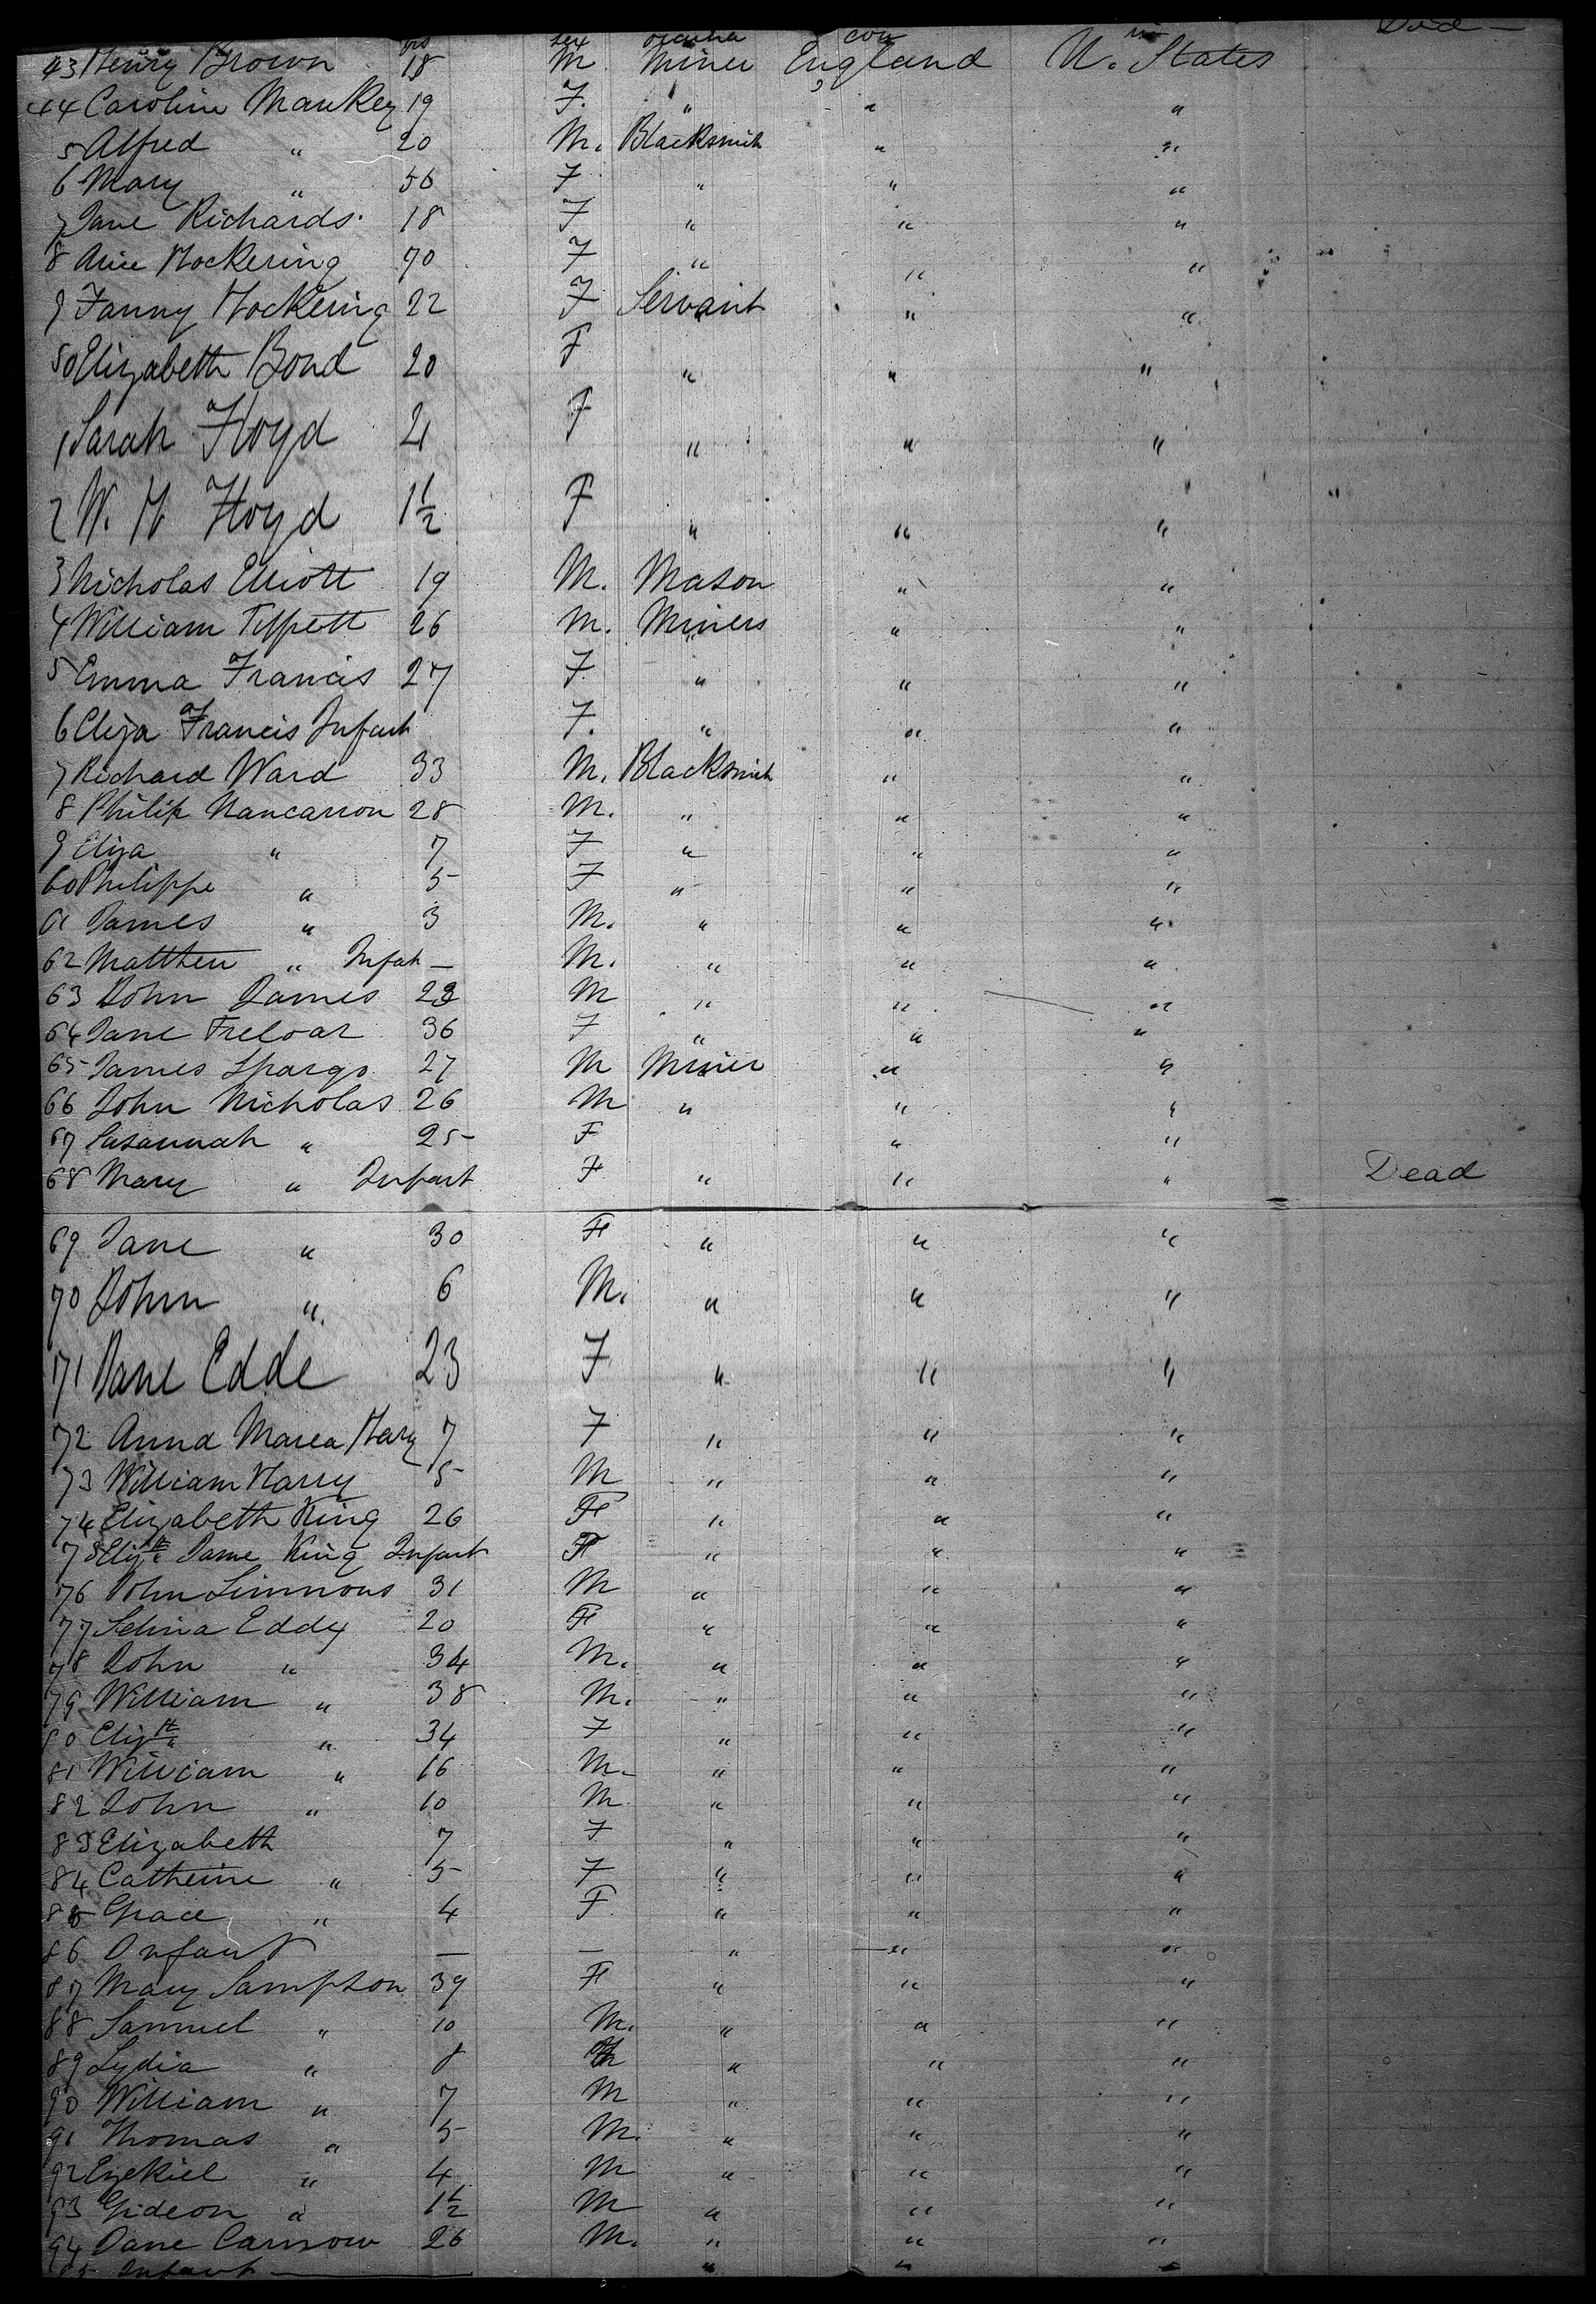 yrs sex occupa cou in Died —
43 Henry Brown 18 M. Miner England U. States
44 Caroline Mankey 19 F. " " "
5 Alfred " 20 M. Blacksmith " "
6 Mary " 56 F " " "
7 Jane Richards. 18 F " " "
8 Alice Hockering 70 F " " "
9 Fanny Hockering 22 F Servant " "
50 Elizabeth Bond 20 F " " "
1 Sarah Floyd 4 F " " "
2 W. H Floyd 1½ F " " "
3 Nicholas Elliott 19 M. Mason " "
4 William Tippett 26 M. Miners " "
5 Emma Francis 27 F. " " "
6 Eliza Francis Infant F. " " "
7 Richard Ward 33 M. Blacksmith " "
8 Philip Nancarrow 28 M. " " "
9 Eliza " 7 F " " "
60 Philippe " 5 F " " "
61 James " 3 M. " " "
62 Matthew " Infat — M. " " "
63 John James 23 M " " "
64 Jane Treloar 36 F " " "
65 James Spargo 27 M Miner " "
66 John Nicholas 26 M " " "
67 Susannah " 25 F " "
68 Mary " Infant F " " " Dead
69 Jane " 30 F " " "
70 John " 6 M. " " "
71 Jane Edde 23 F " " "
72 Anna Marea Harry 7 F " " "
73 William Harry 5 M " " "
74 Elizabeth King 26 F " " "
75 Elizth Jane King Infant F " " "
76 John Simmons 31 M " " "
77 Selina Eddy 20 F " " "
78 John " 34 M. " " "
79 William " 38 M. " " "
80 Elizth " 34 F " " "
81 William " 16 M. " " "
82 John " 10 M " " "
83 Elizabeth 7 F " " "
84 Catherine " 5 F " " "
85 Grace " 4 F " " "
86 Infant — — " " "
87 Mary Sampson 39 F " " "
88 Samuel " 10 M. " " "
89 Lydia " 8 " " "
90 William " 7 M " " "
91 Thomas " 5 M. " " "
92 Ezekiel " 4 M " " "
93 Gideon " 1½ M " " "
94 Jane Carnow 26 M. " " "
95 Infant — " " "